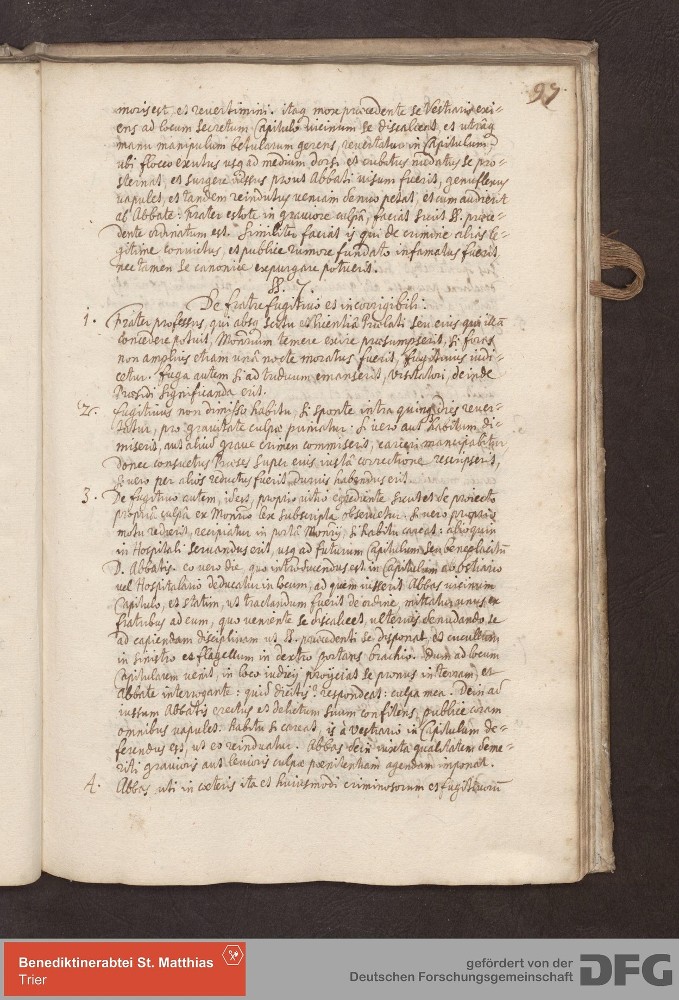 97
moris est, et revertimini. itaq. more praecedente se Vestiario exi-
ens ad locum secretum Capitulo vicinum se discalceet, et utraq
manu manipulum betularum gerens, revertatur in Capitulum,
ubi flocco exutus usq ad medium dorsi et cubitus nudatus se pro-
sternat, et surgere iussus prout Abbati visum fuerit, genuflexus
vapulet, et tandem reindutus veniam denuo petat, et cum audierit
ab Abbate: frater estote in graviore culpa, faciat sicut §. praece-
dente ordinatum est. Similiter faciat is qui de crimine alias le-
gitime convictus, et publice rumore fundato infamatus fuerit
nec tamen se canonice expurgare potuerit.
§. 7.
De fratre fugitivo et incorrigibili.
1. Frater professus, qui absq scitu et licentia Praelati seu eius qui illa
concedere potuit, Monrium temere exire praesumpserit, si foras
non amplius etiam una nocte moratus fuerit, fugitivus iudi-
cetur. Fuga autem si ad triduum emanserit, visitatori, deinde
Praesidi significanda erit.
2. Fugitivus non dimisso habitu, si sponte intra quinq dies rever-
tatur, pro gravitate culpae puniatur. si vero aut habitum di-
miserit, aut aliud grave crimen commiserit, carceri mancipabitur
donec consuetus Praeses super eius iusta correctione rescripserit,
si vero per alios reductus fuerit, durius habendus erit.
3. De fugitivo autem, id est, proprio vitio egrediente sicut et de proiecto
propria culpa ex Monrio lex subscripta observetur. si vero proprio
motu redierit, recipiatur in porta Monrij, si habitu careat: alioquin
in Hospitali servandus erit, usq ad futurum Capitulum seu beneplacitu
D. Abbatis. eo vero die, quo introducendus est in Capitulum ab ostiario
vel Hospitalario deducatur in locum, ad quem iusserit Abbas vicinum
Capitulo, et statim, ut tractandum fuerit de ordine, mittatur unus ex
fratribus ad eum, quo veniente se discalceet, ulterius denudando se
ad capiendam disciplinam ut §. praecedenti se disponat, et cucullam
in sinistro et flagellum in dextro portans brachio. Dum ad locum
Capitularem venit, in loco iudicij proijciat se pronus in terram, et
Abbate interrogante: quid dicitis? respondeat: culpa mea. Dein ad
iussum Abbatis erectus et delictum suum confitens, publice coram
omnibus vapulet. habitu si careat, is a vestiario in Capitulum de-
ferendus est, ut eo reinduatur. Abbas dein iuxta qualitatem deme-
riti gravioris aut levioris culpae poenitentiam agendam imponat.
4. Abbas uti in caeteris ita et huiusmodi criminosorum et fugitivoru
Benediktinerabtei St. Matthias
Trier
gefördert von der
Deutschen Forschungsgemeinschaft
DFG